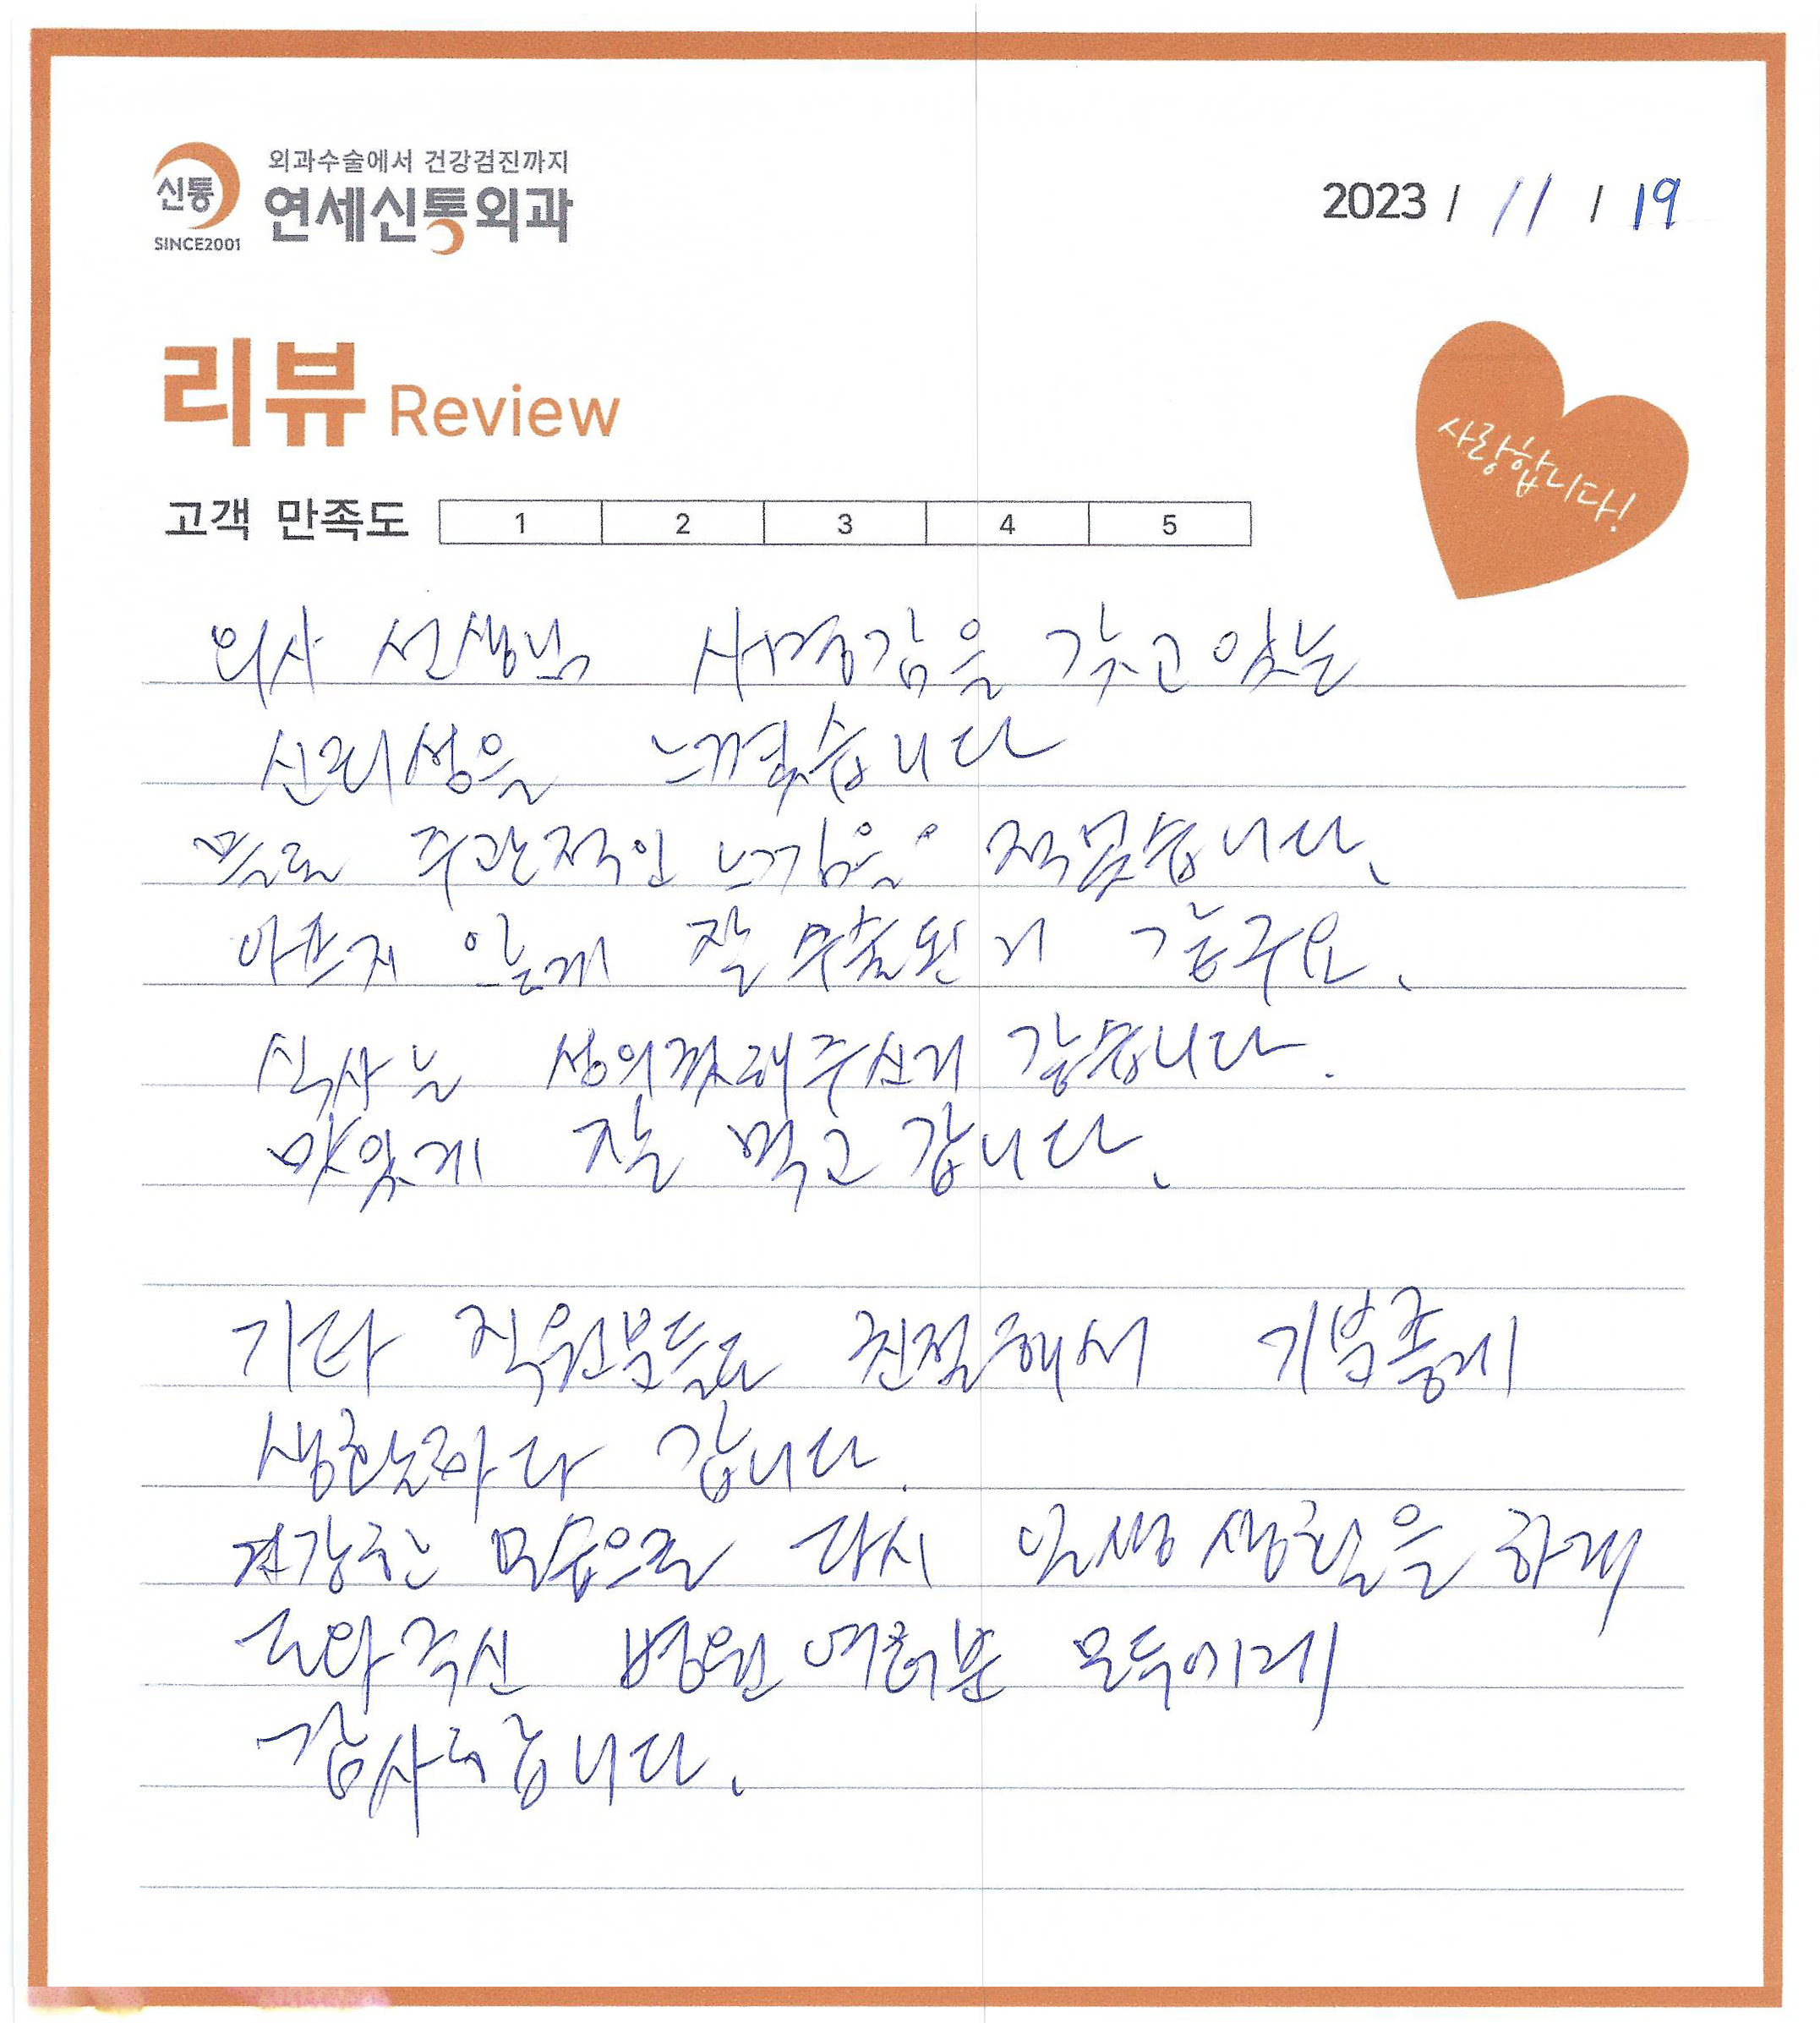 외과수술에서 건강검진까지
신통 연세신통외과
SINCE2001
2023 / 11 / 19
리뷰 Review
사랑합니다!
고객 만족도 1 2 3 4 5
의사 선생님 사명감을 갖고 있는
신뢰성을 느꼈습니다
주관적인 느낌을 적었습니다.
아프지 않게 잘 수술된거 같구요.
식사는 성의껏해주신거 같습니다.
맛있게 잘 먹고 갑니다.
기타 직원분들도 친절해서 기분좋게
생활하다 갑니다.
건강한 모습으로 다시 일상생활을 하게
도와주신 병원 여러분 모두에게
감사드립니다.